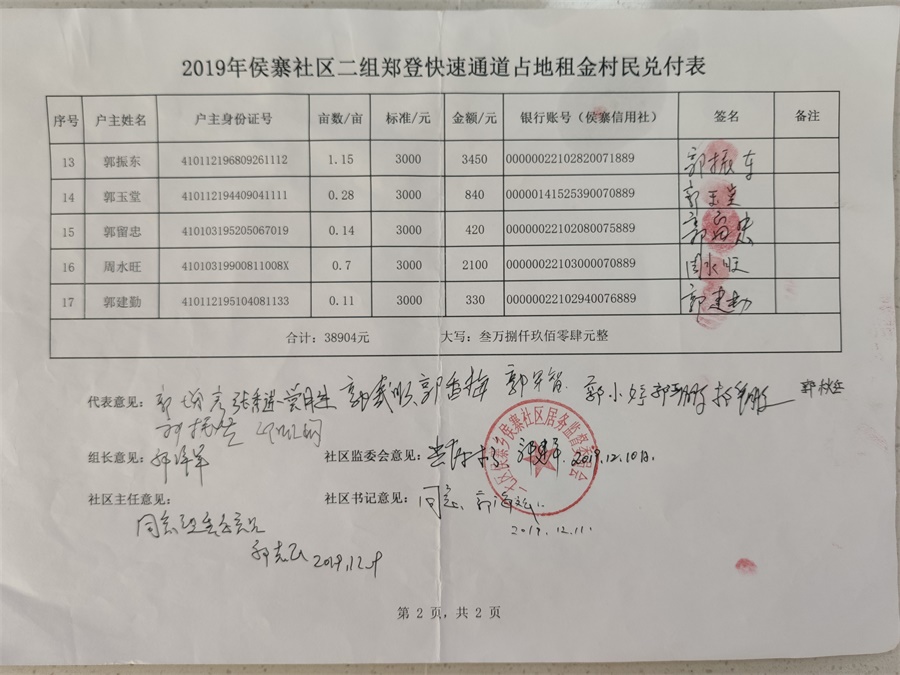 2019年侯寨社区二组郑登快速通道占地租金村民兑付表
序号 户主姓名 户主身份证号 亩数/亩 标准/元 金额/元 银行账号（侯寨信用社） 签名 备注
13 郭振东 410112196809261112 1.15 3000 3450 00000022102820071889 郭振东
14 郭玉堂 410112194409041111 0.28 3000 840 00000141525390070889 郭玉堂
15 郭留忠 410103195205067019 0.14 3000 420 00000022102080075889 郭留忠
16 周水旺 41010319900811008X 0.7 3000 2100 00000022103000070889 周水旺
17 郭建勤 410112195104081133 0.11 3000 330 00000022102940076889 郭建勤
合计：38904元 大写：叁万捌仟玖佰零肆元整
代表意见：
组长意见： 社区监委会意见： 2019.12.10日.
社区主任意见： 社区书记意见： 同意
2019.12.11.
同意
2019.12.9
第 2 页，共 2 页